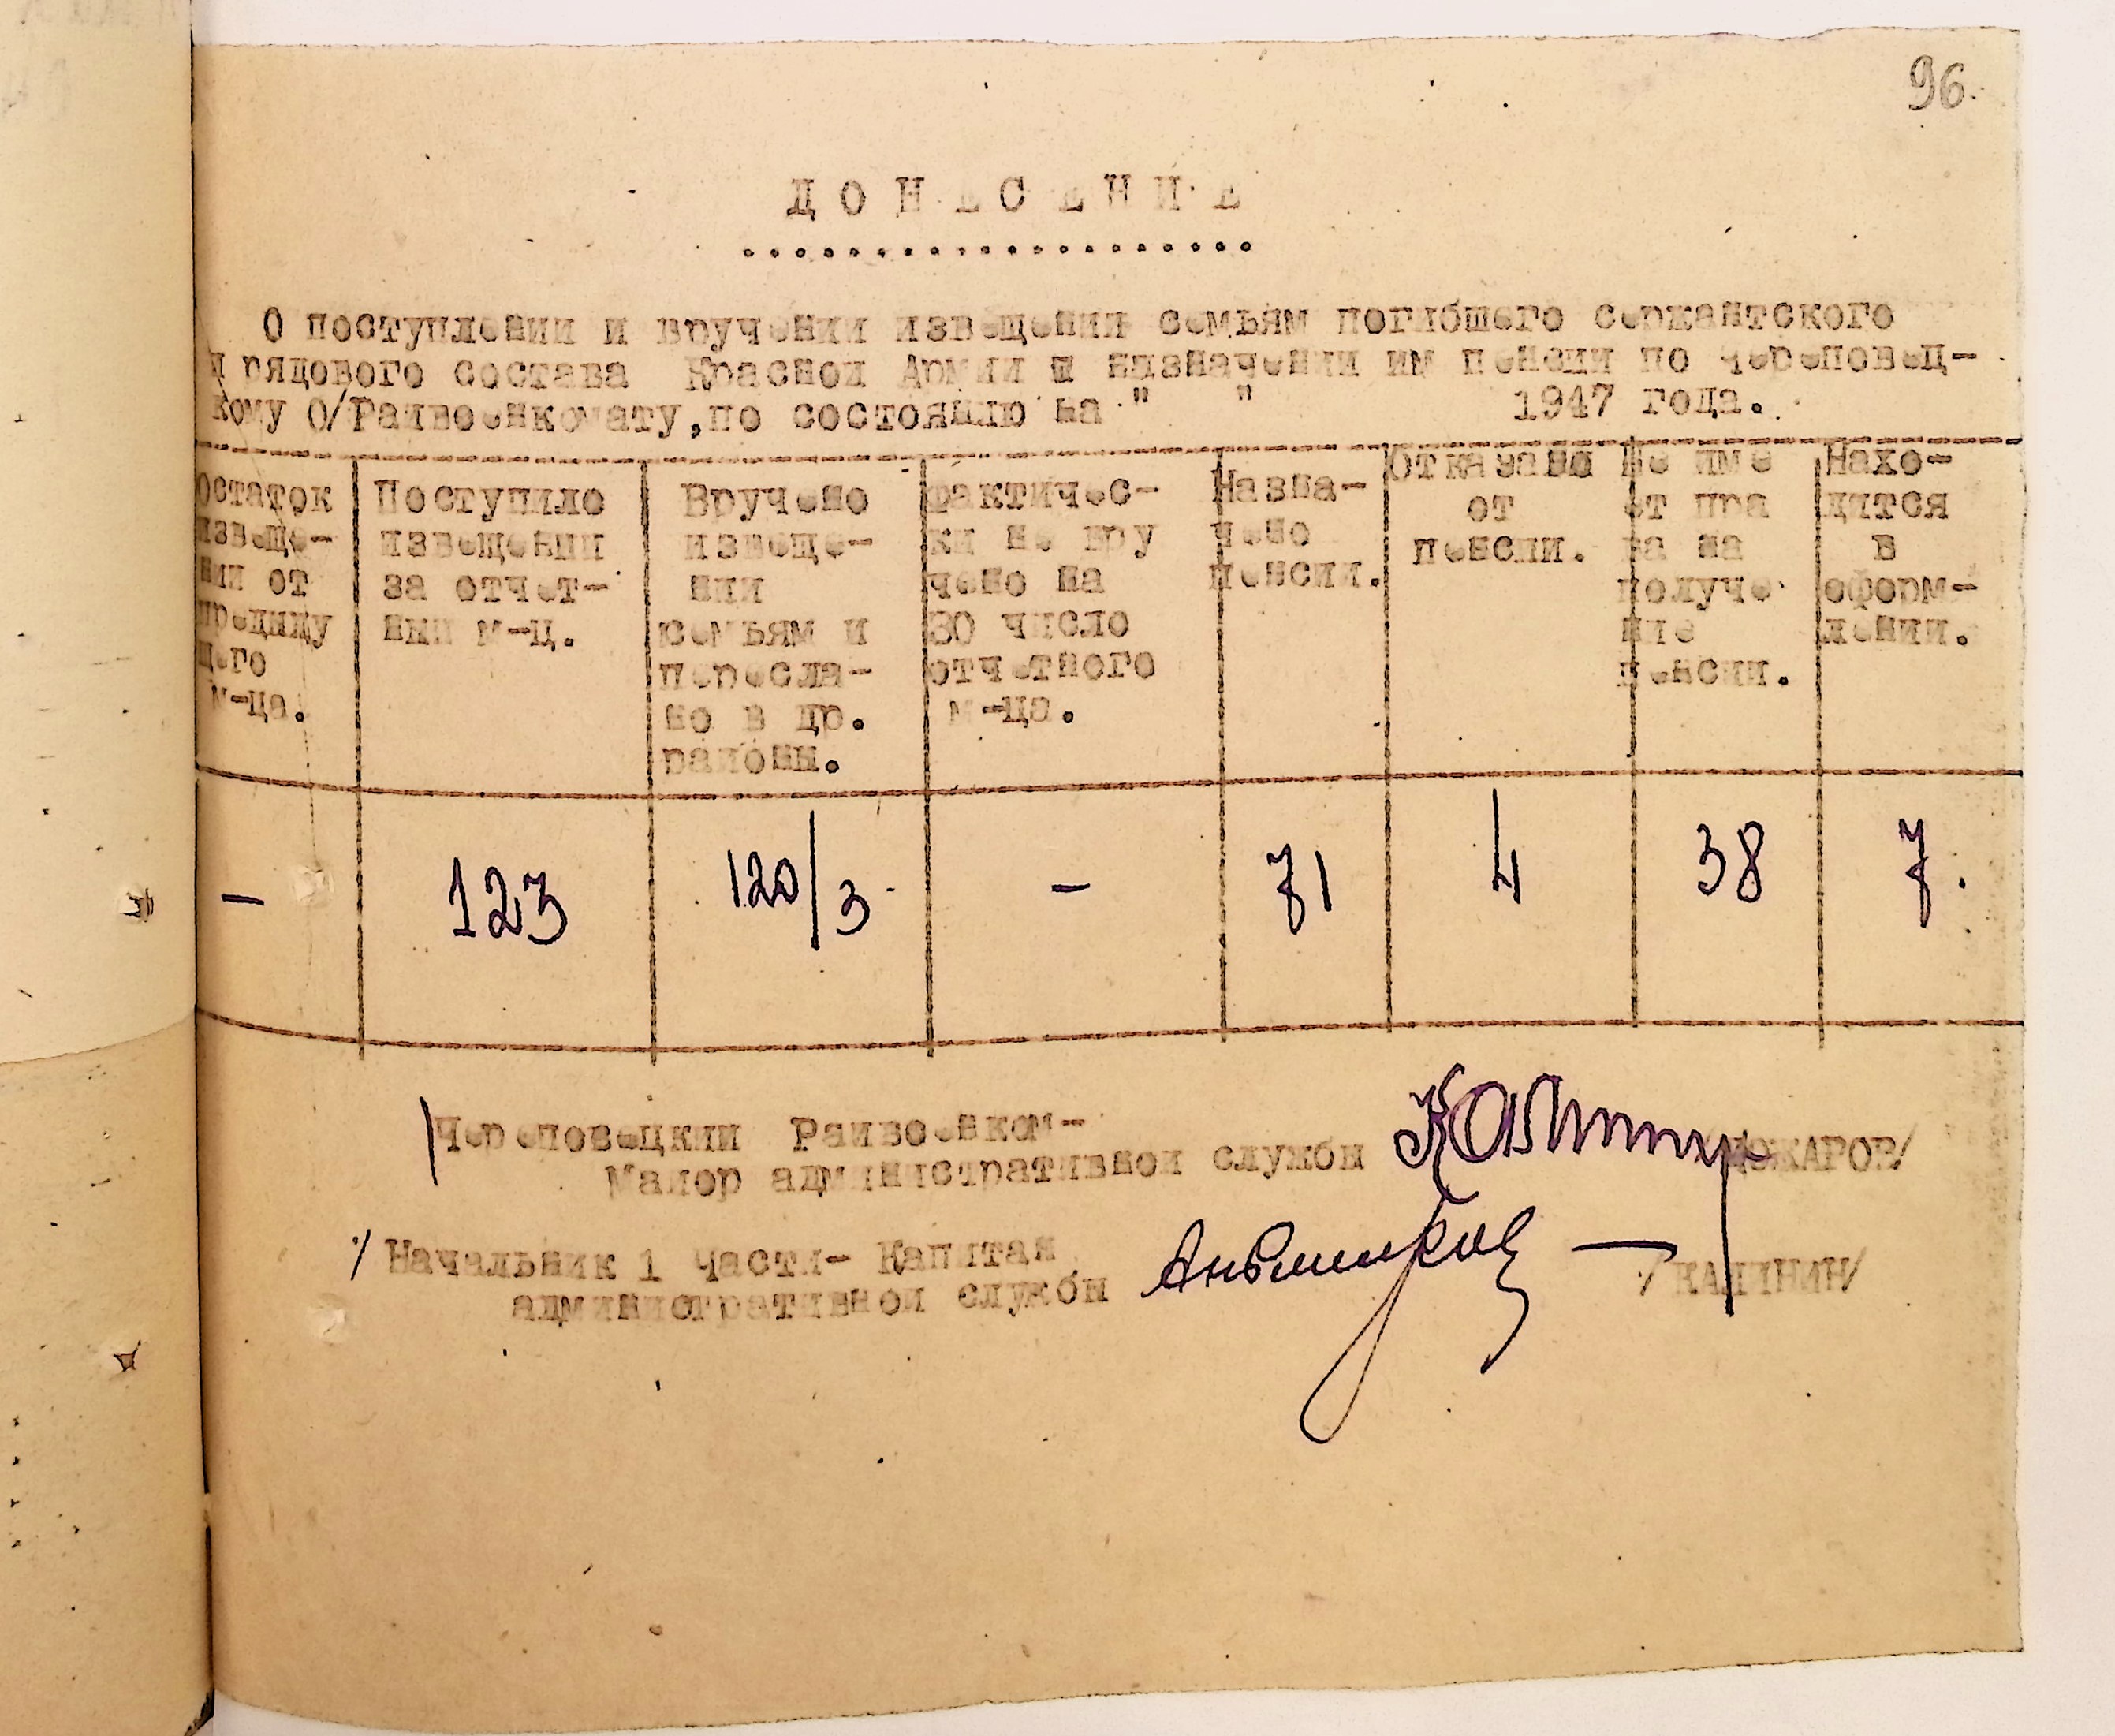 96.
ДОНЕСЕНИЕ
О поступлении и вручении извещений семьям погибшего сержантского
и рядового состава Красной Армии и назначении им пенсии по Череповец-
кому О/Райвоенкомату, по состоянию на " " 1947 года.
Остаток извеще- ний от предиду щего м-ца.
Поступило извещений за отчет- ный м-ц.
Вручено извеще- ний семьям и пересла- но в др. районы.
фактичес- ки не вру чено на 30 число отчетного м-ца.
Назна- чено пенсий.
Отказано от пенсии.
Не име ет пра ва на получе- ние пенсии.
Нахо- дится в оформ- лении.
- 123 120/3 - 71 4 38 7.
Череповецкий Райвоенком-
Майор административной службы /КАРОВ/
/ Начальник 1 части- Капитан
административной службы /КАЛИНИН/